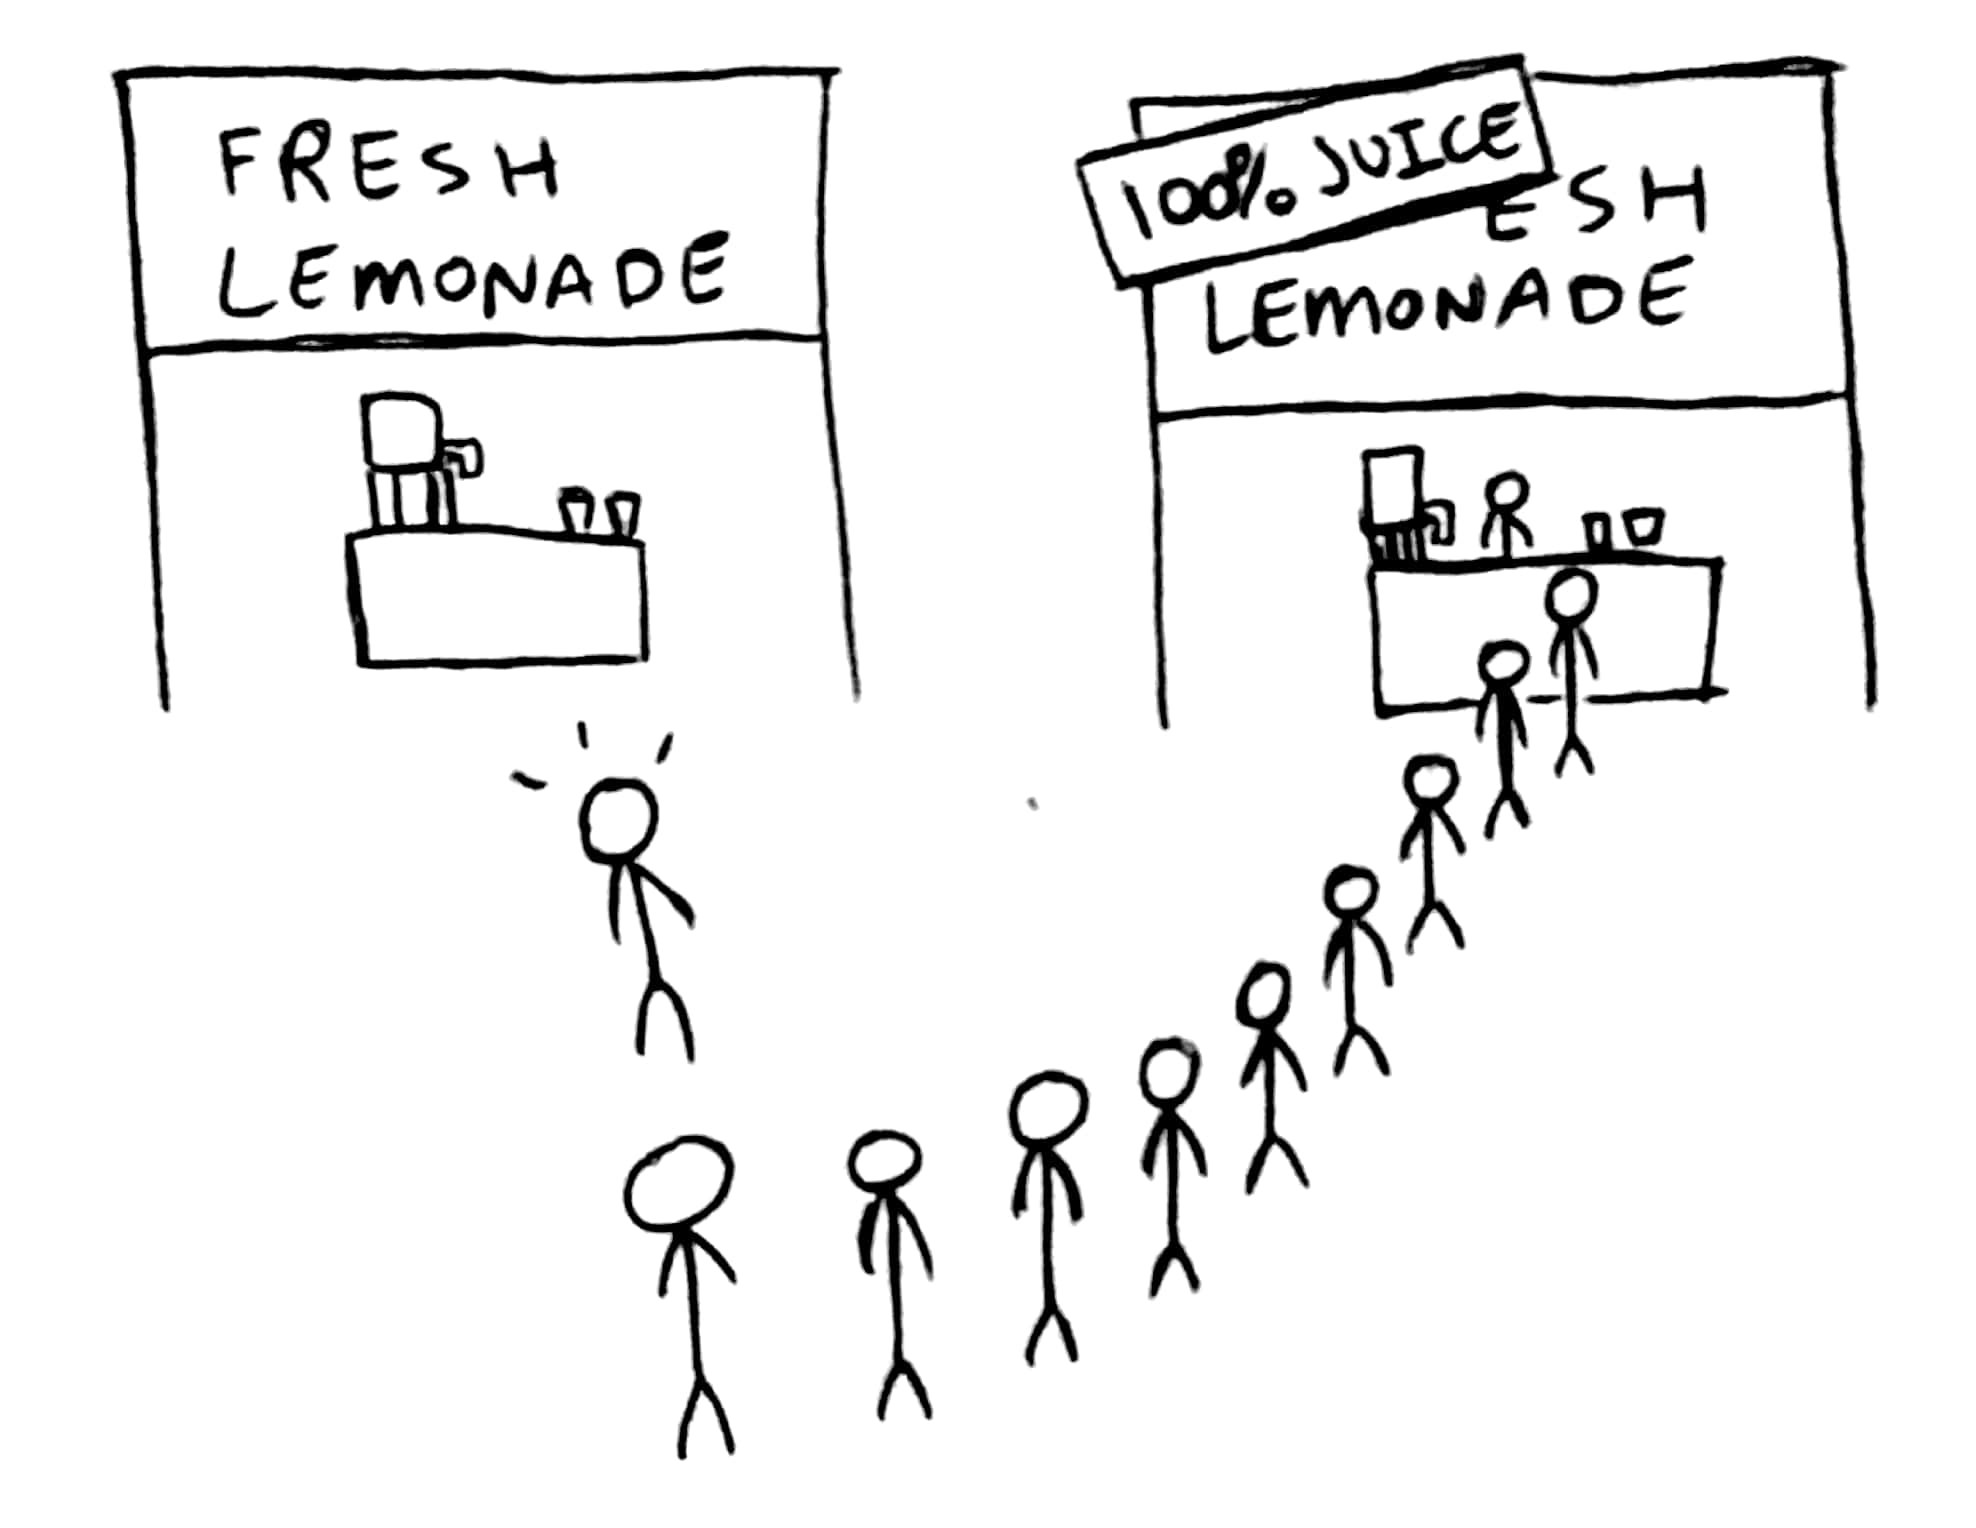 FRESH
LEMONADE
100% JUICE
ESH
LEMONADE